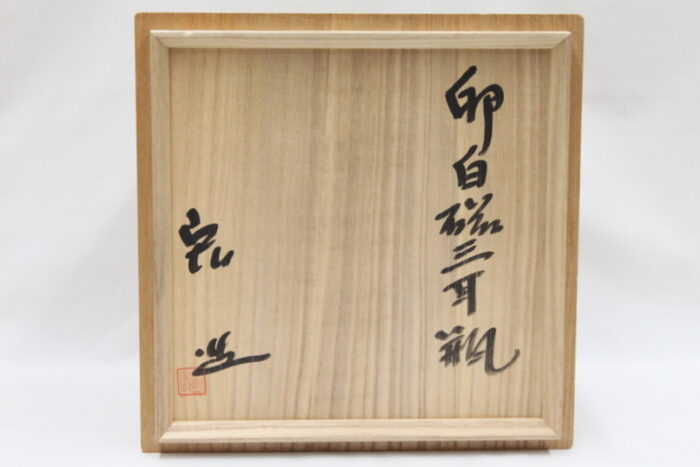 卵白磁三耳瓶
宏造